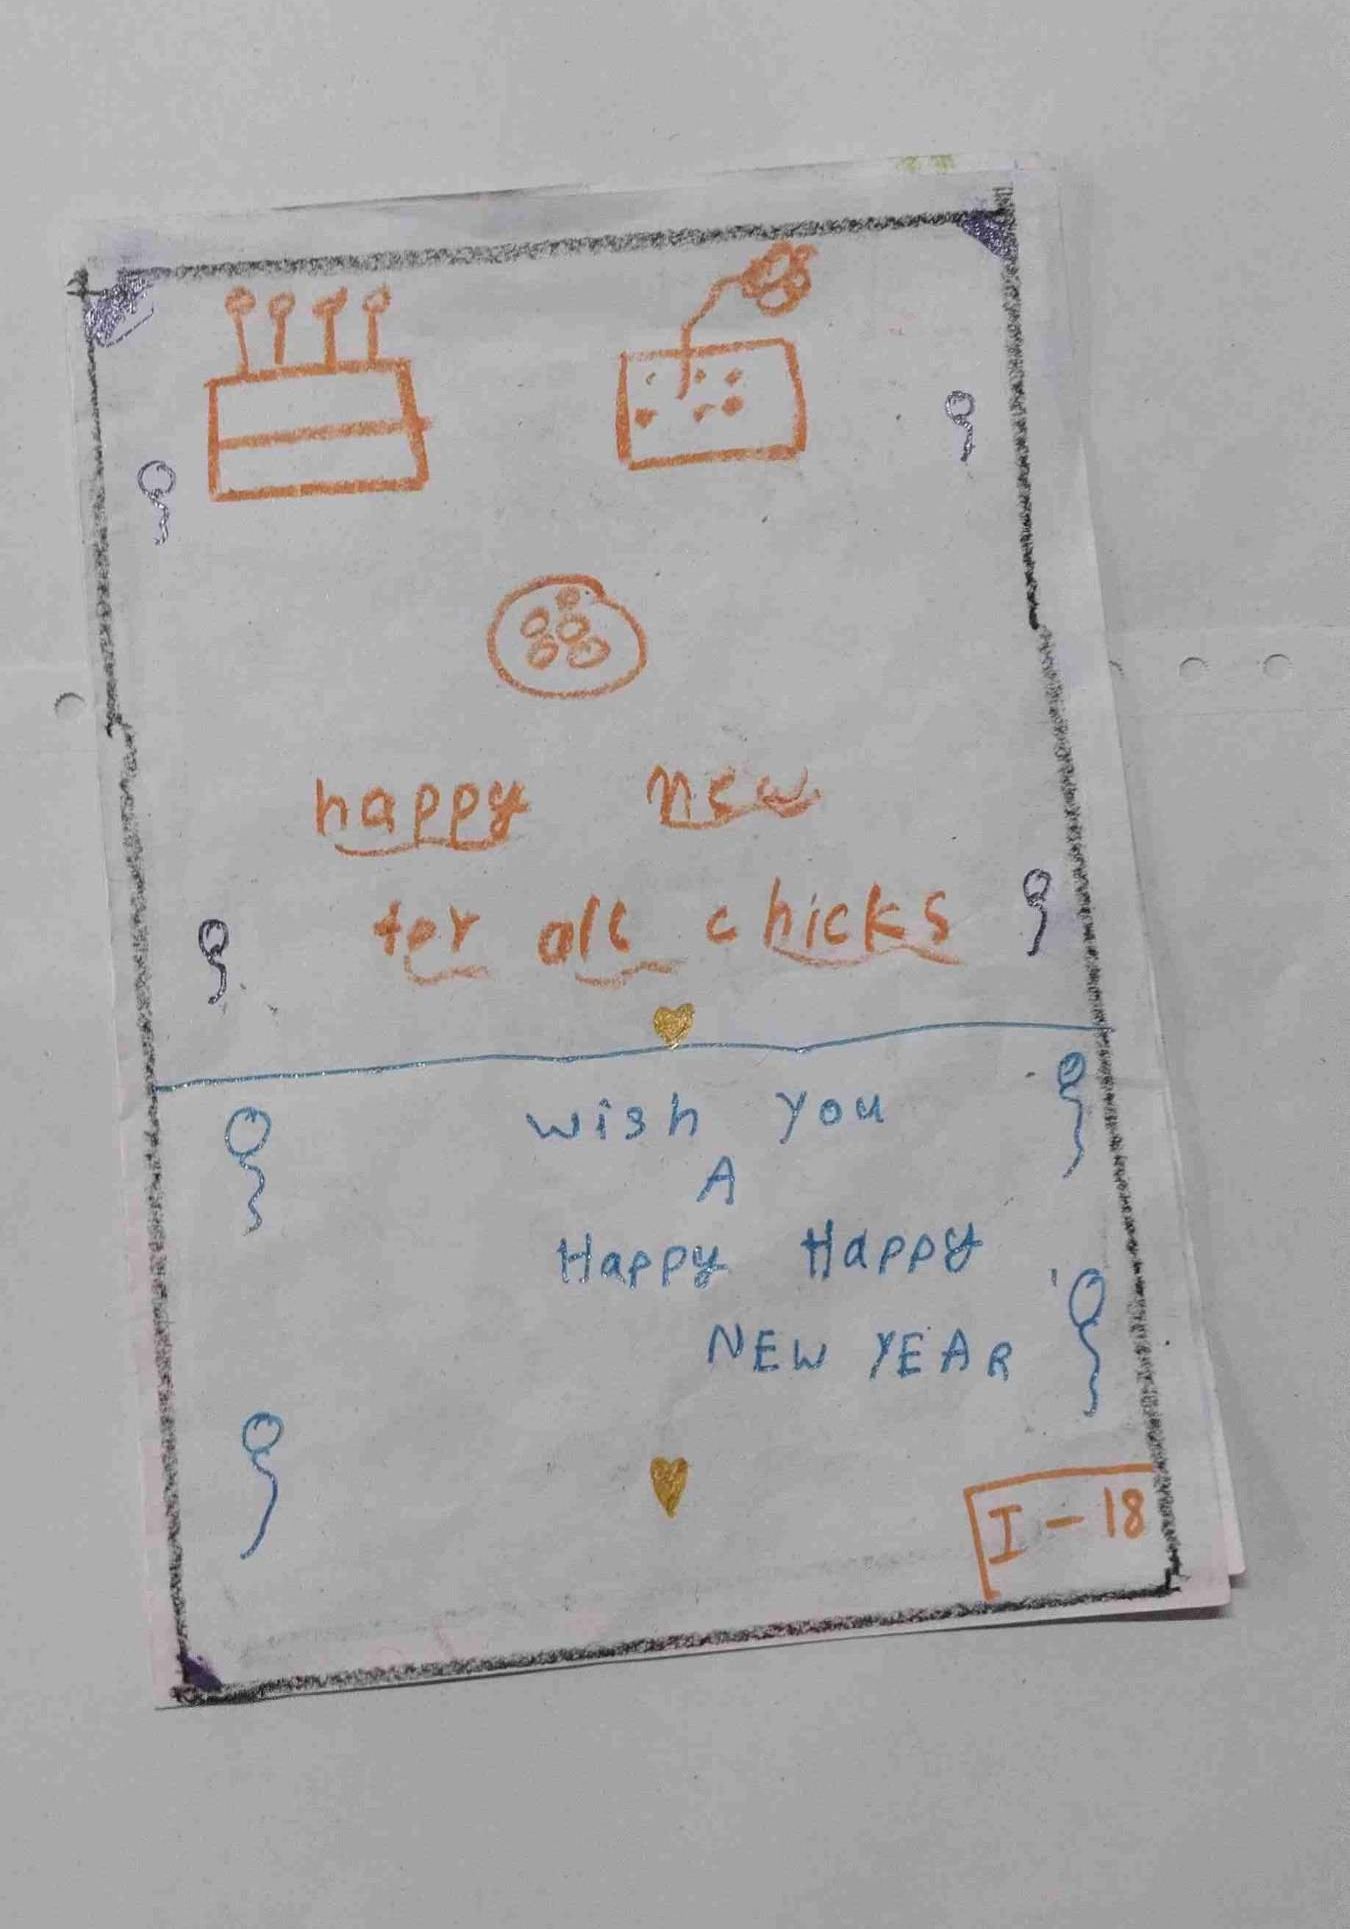 happy new
for all chicks
Wish You
A
Happy Happy
NEW YEAR
I - 18